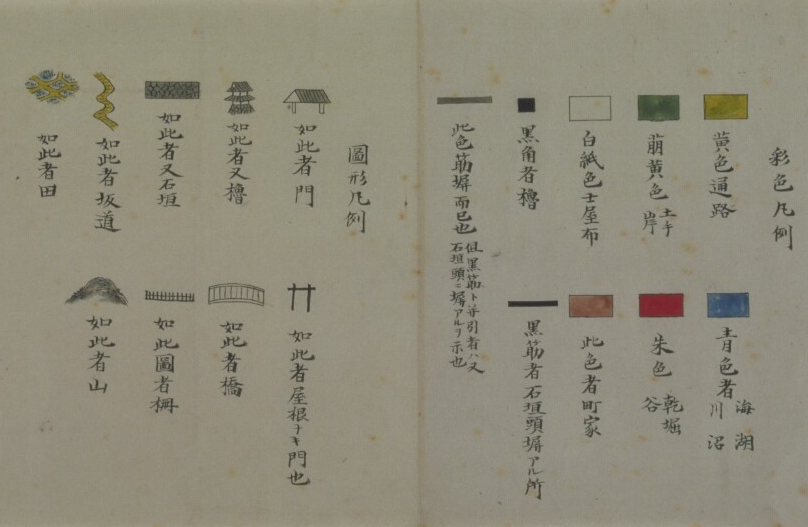 彩色凡例
黄色通路
青色者 海 湖 川 沼
萠黄色 土手 岸
朱色 乾堀 谷
白紙色士屋布
此色者町家
黒角者櫓
黒筋者石垣頭塀アル所
此色筋塀而已也
但黒筋ト并引者ハ又
石垣頭ニ塀アルヲ示也
圖形凡例
如此者門
如此者屋根ナキ門也
如此者又櫓
如此者橋
如此者又石垣
如此圖者柵
如此者坂道
如此者山
如此者田